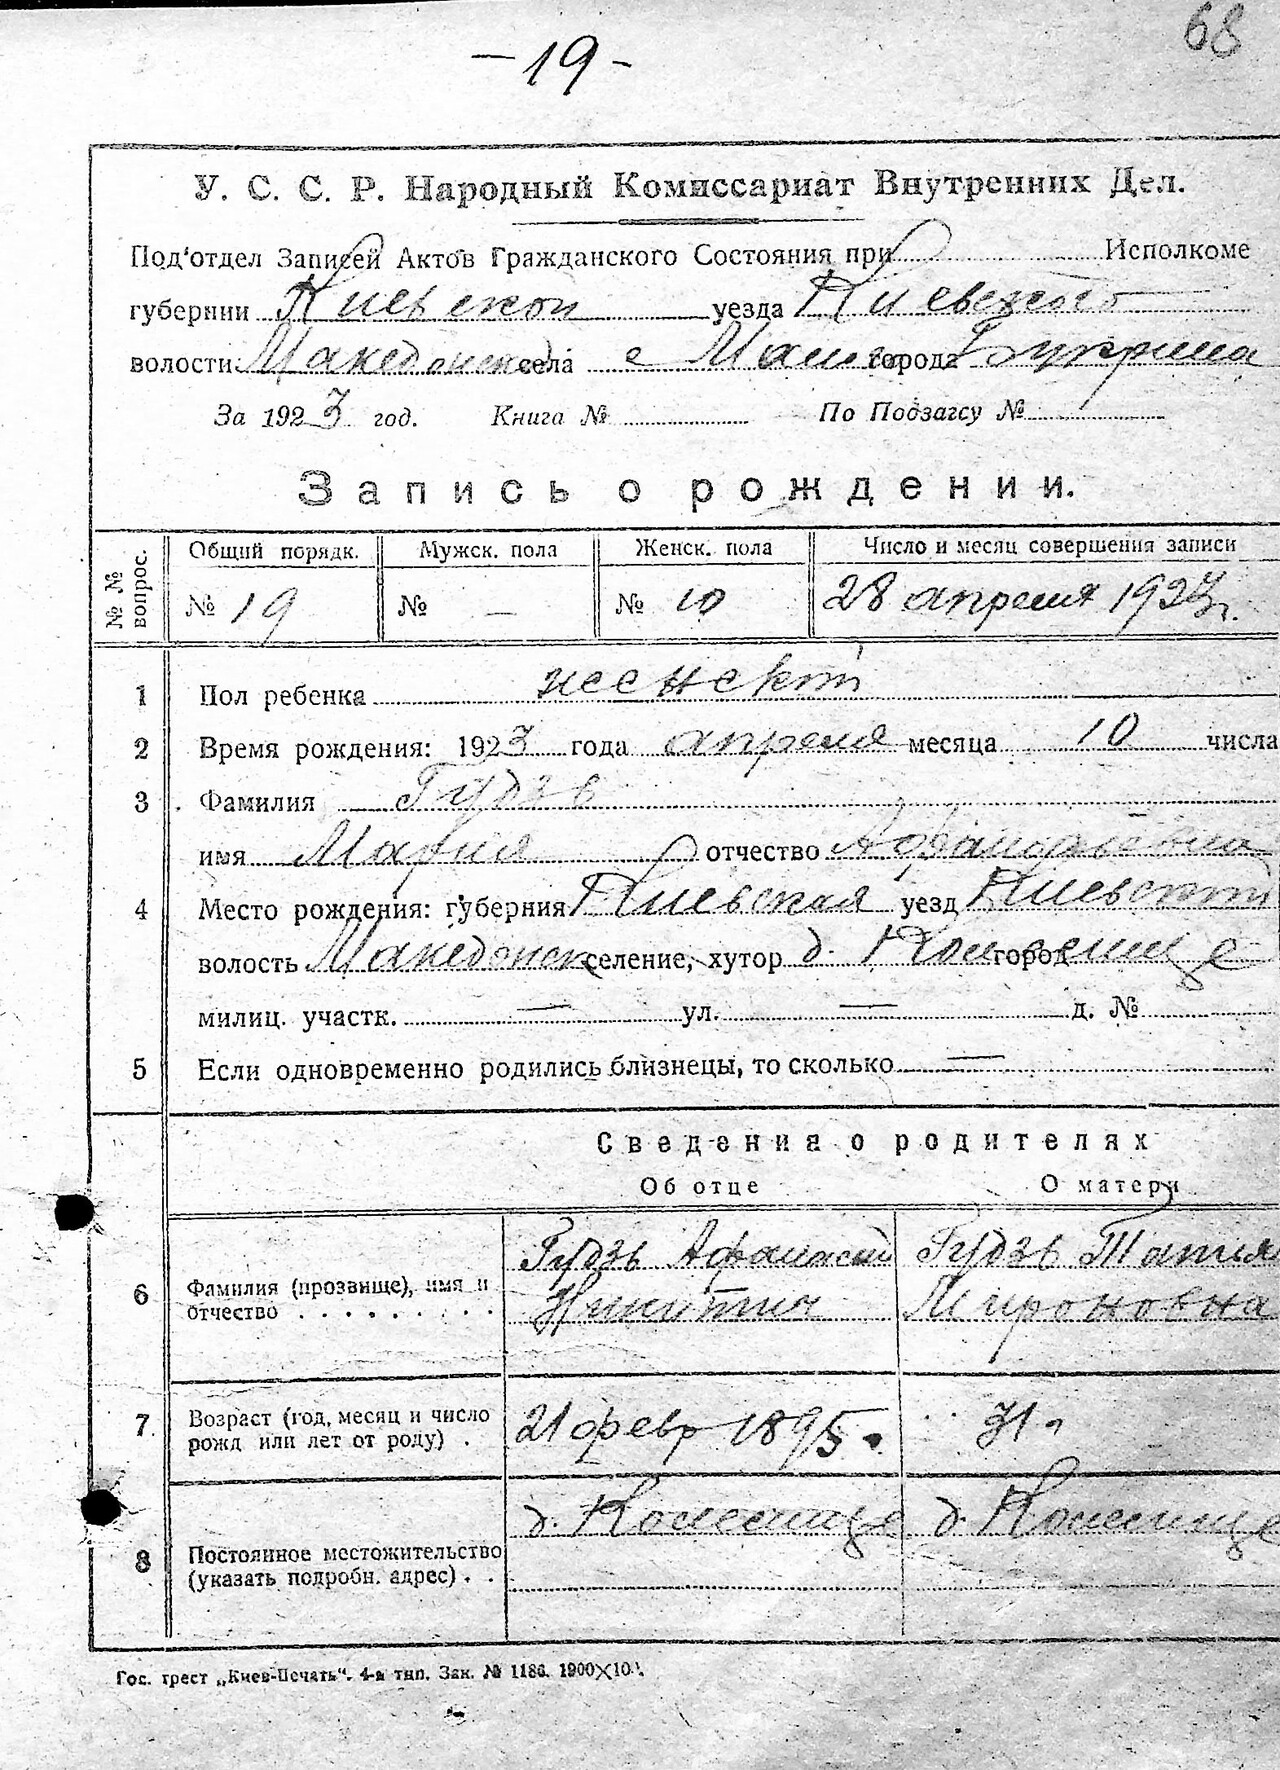 68
- 19 -
У. С. С. Р. Народный Комиссариат Внутренних Дел.
Под'отдел Записей Актов Гражданского Состояния при Исполкоме
губернии Киевской уезда Киевского
волости Македонской села с Мал. города Букрина
За 1923 год. Книга № По Подзагсу №
Запись о рождении.
№ № вопрос.
Общий порядк. Мужск. пола Женск. пола Число и месяц совершения записи
№ 19 № — № 10 28 апреля 1923 г.
1 Пол ребенка женский
2 Время рождения: 1923 года апреля месяца 10 числа
3 Фамилия Гудзь
имя Мария отчество Афанасьевна
4 Место рождения: губерния Киевская уезд Киевский
волость Македонск селение, хутор д. город
милиц. участк. — ул. — д. №
5 Если одновременно родились близнецы, то сколько —
Сведения о родителях
Об отце О матери
6 Фамилия (прозвище), имя и отчество . . . . . . . .
Гудзь Афанасий Никитич
Гудзь Татья Мироновна
7 Возраст (год, месяц и число рожд или лет от роду) .
21 февр 1895. 31 г
8 Постоянное местожительство (указать подробн. адрес) . .
д. д.
Гос. трест „Киев-Печать". 4-я тип. Зак. № 1186. 1900×10.